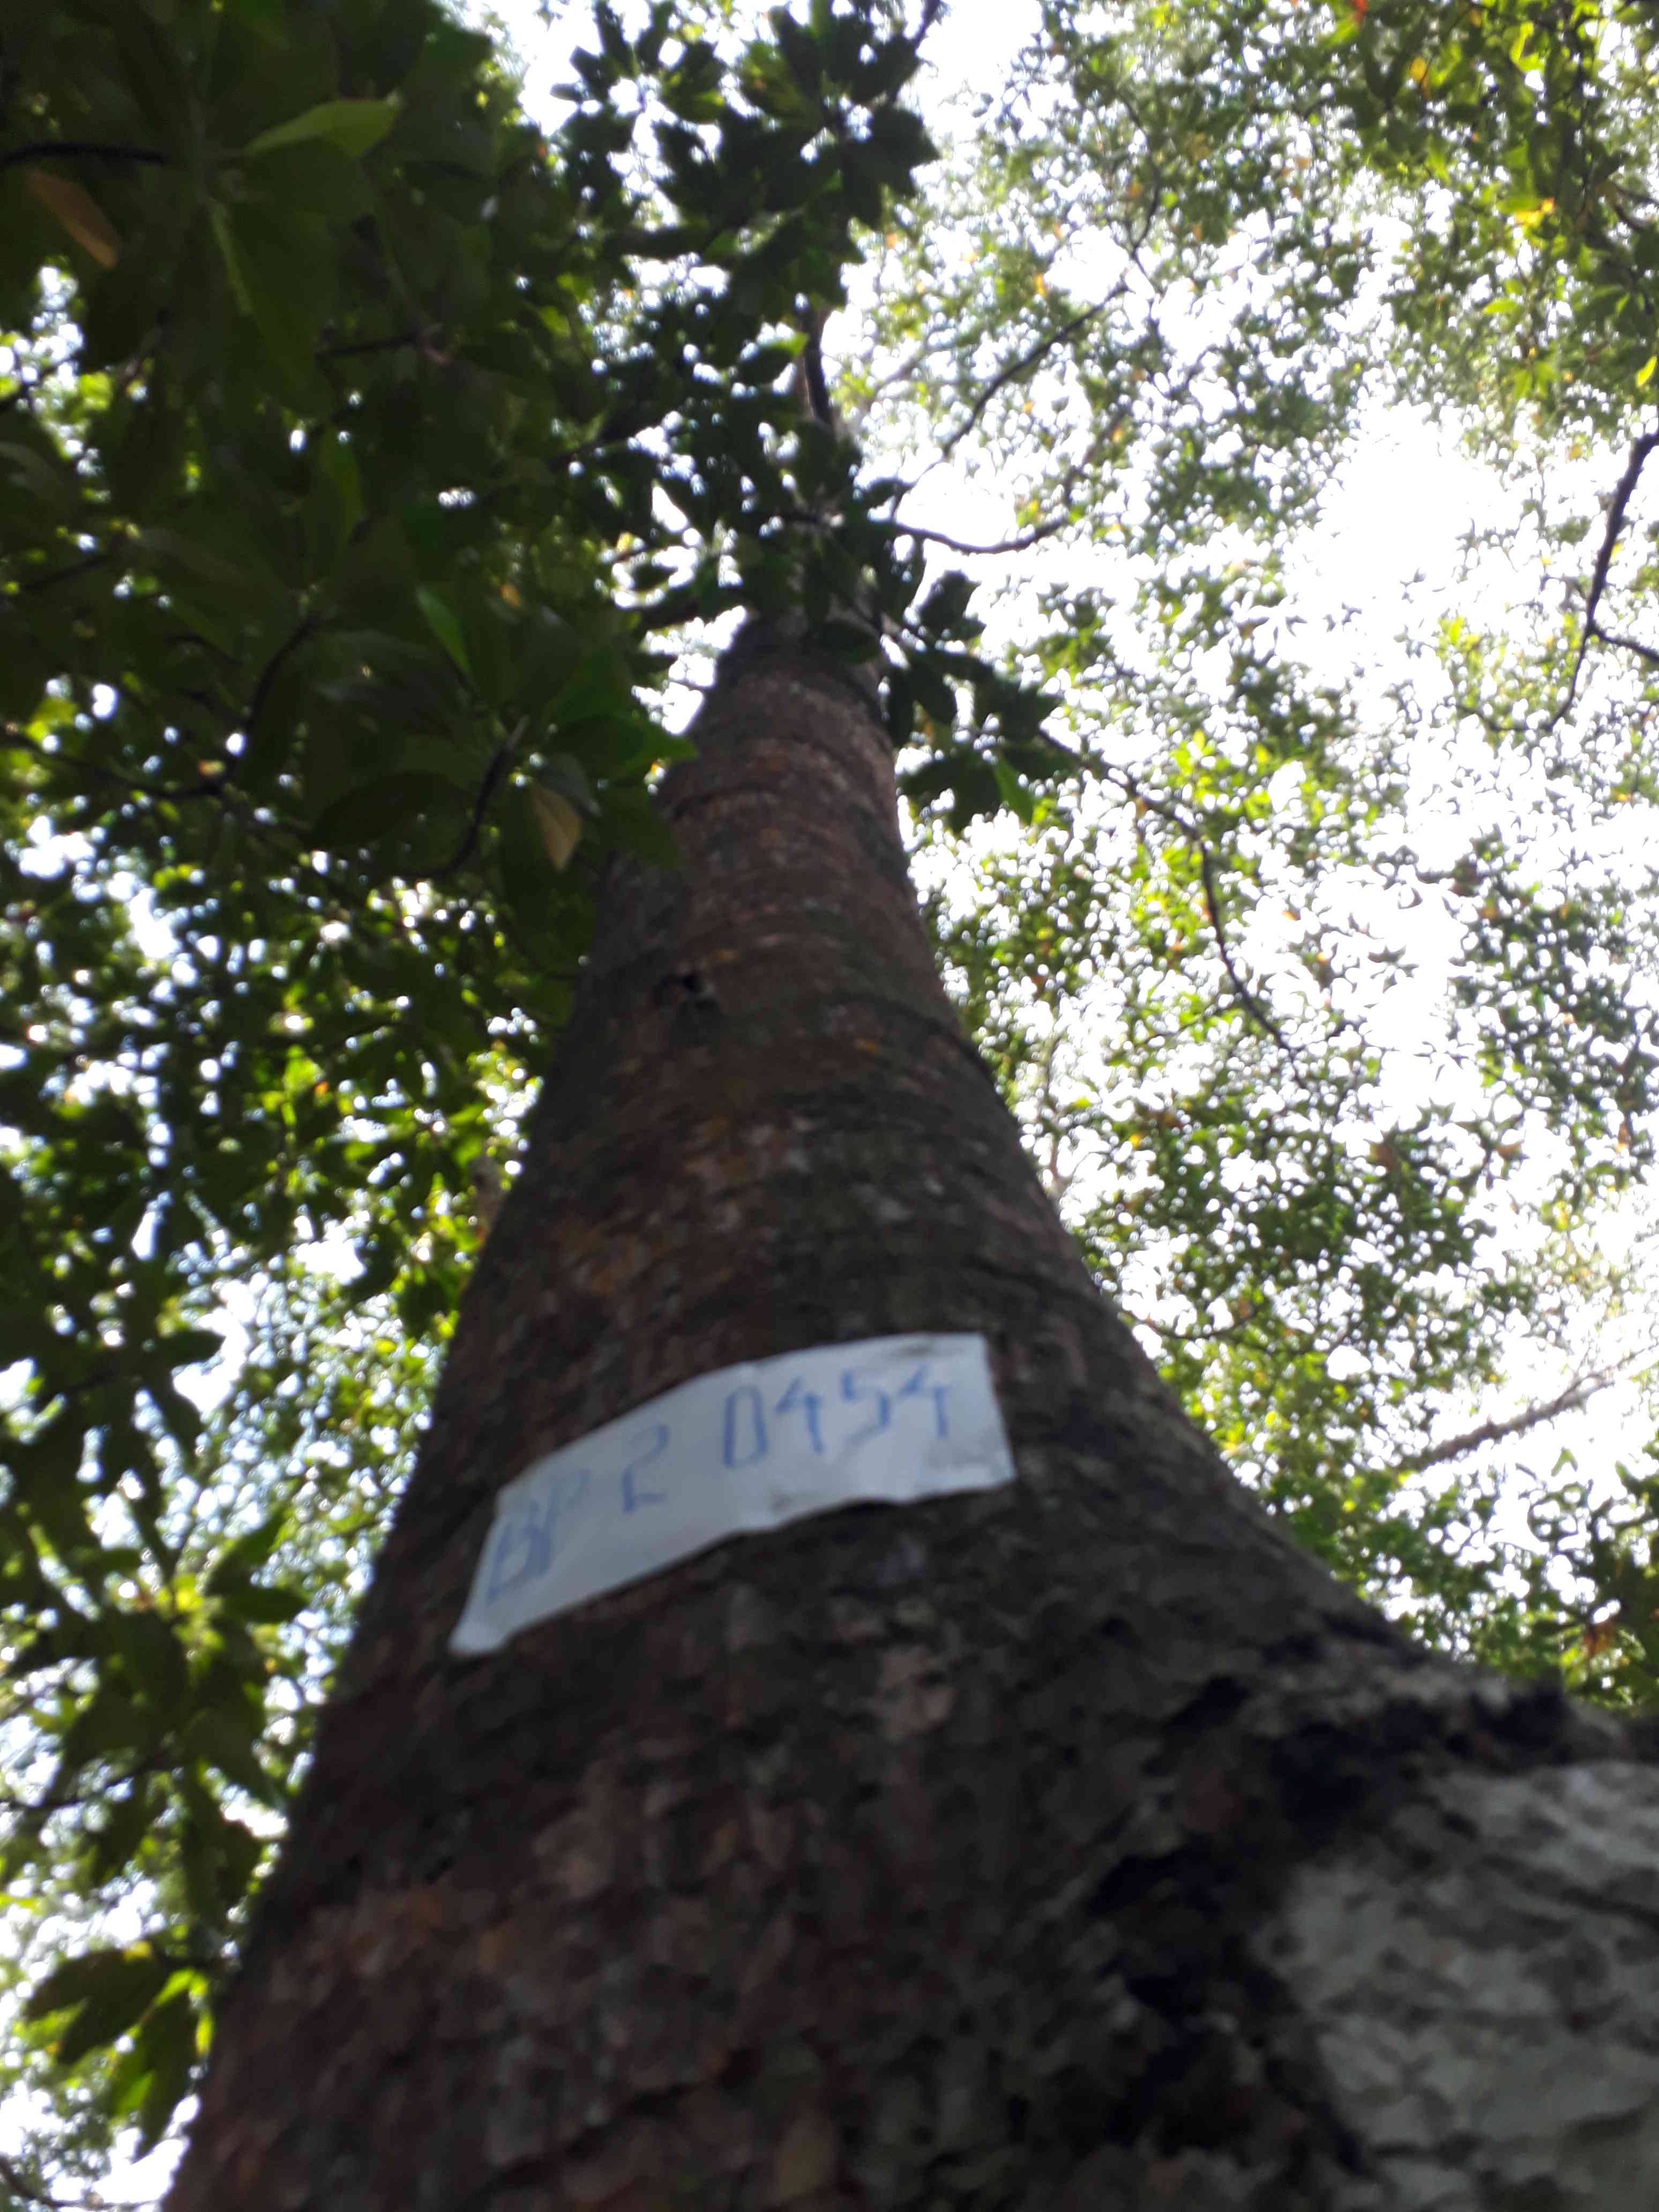 BP2 0454